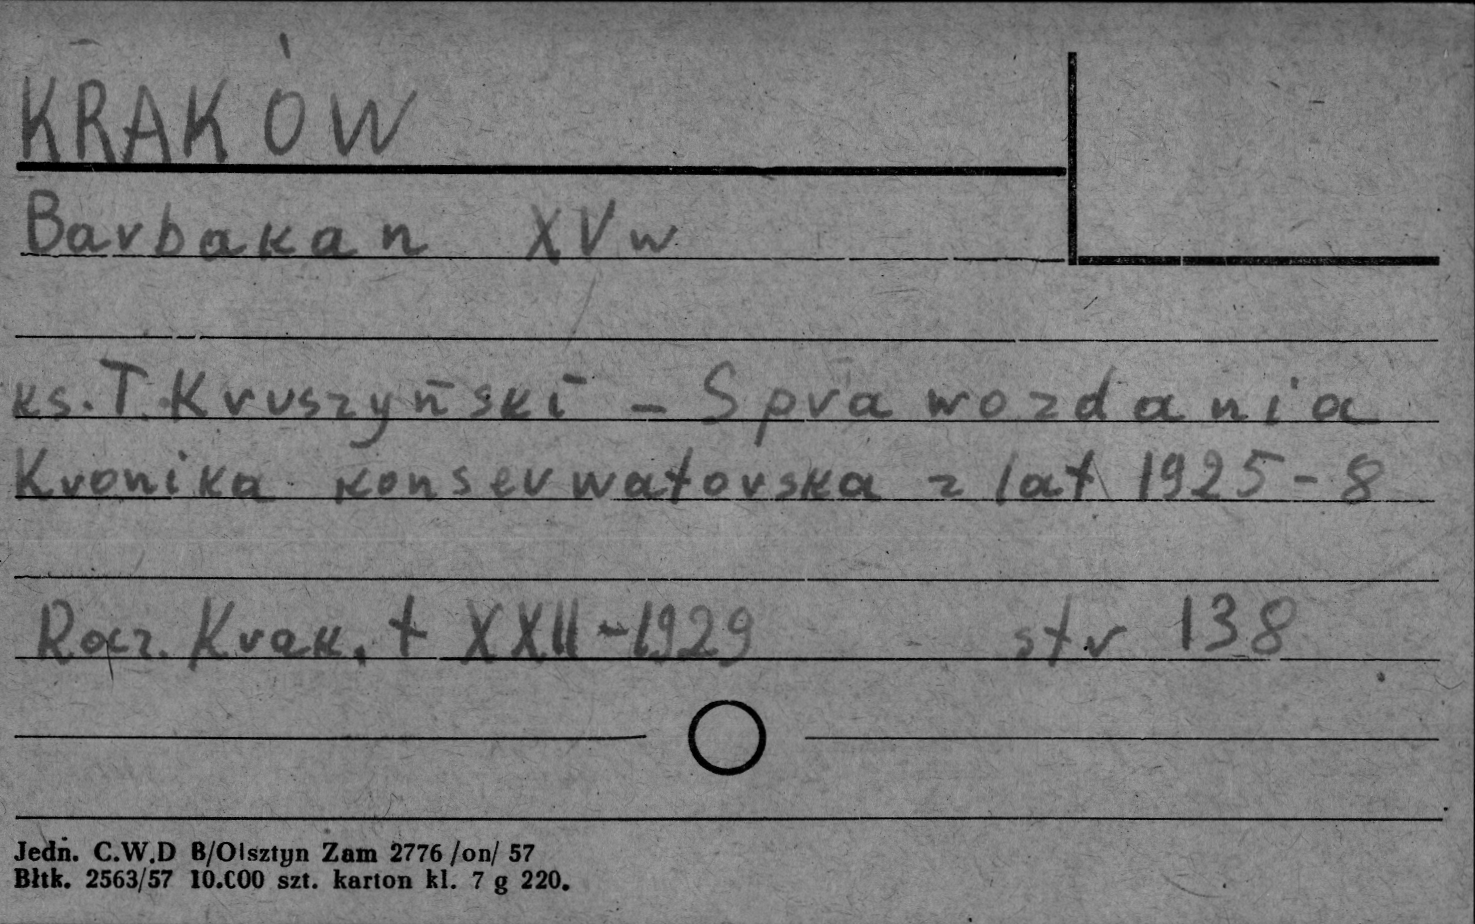 KRAKÓW
Barbakan XV w
ks. T. Kruszyński – Sprawozdania
Kronika konserwatorska z lat 1925-8
Rocz. Krak. t XXII-1929 str 138
Jedn. C.W.D B/Olsztyn Zam 2776 /on/ 57
Błtk. 2563/57 10.000 szt. karton kl. 7 g 220.